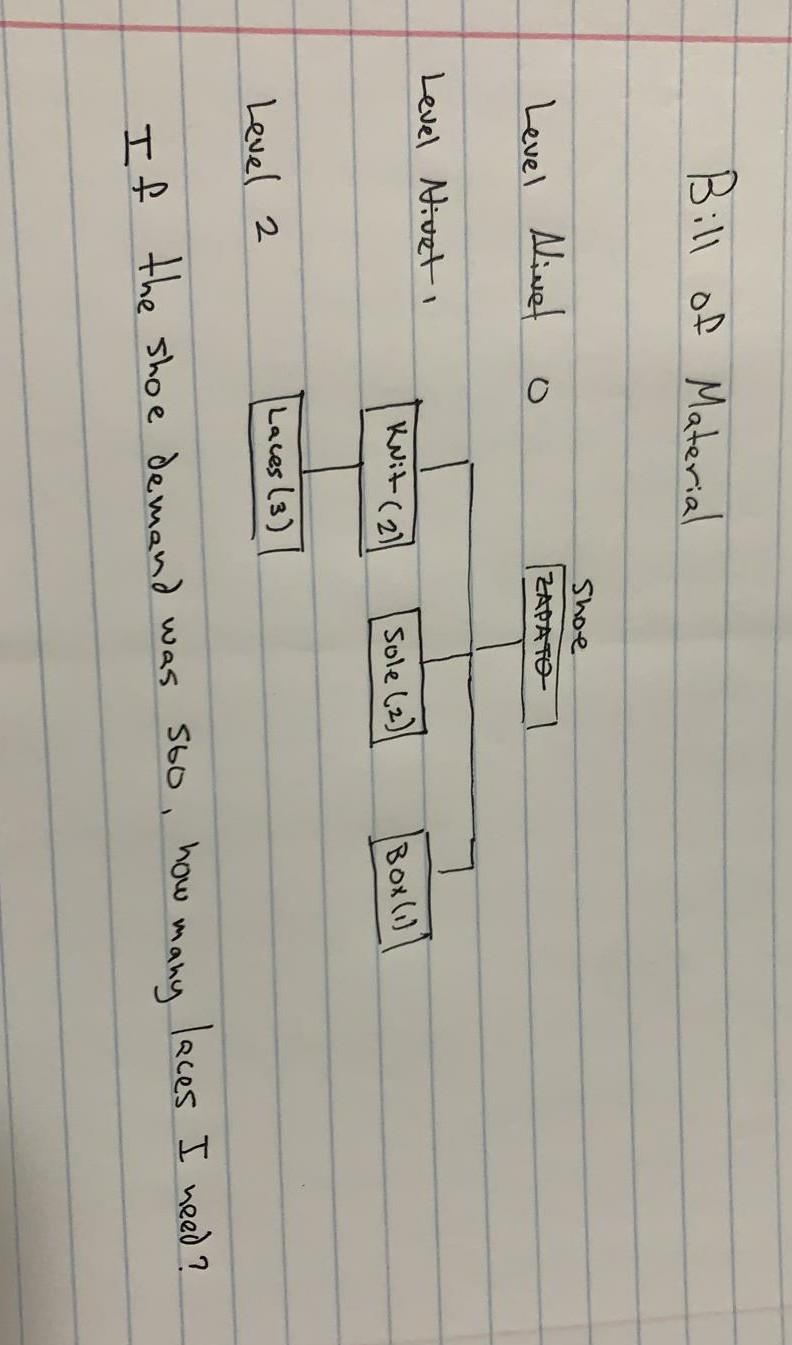 Bill of Material
Level Nivel 0
Shoe
ZAPATO
Level Nivel 1
Knit (2)
Sole (2)
Box (1)
Level 2
Laces (3)
If the shoe demand was 560, how many laces I need?